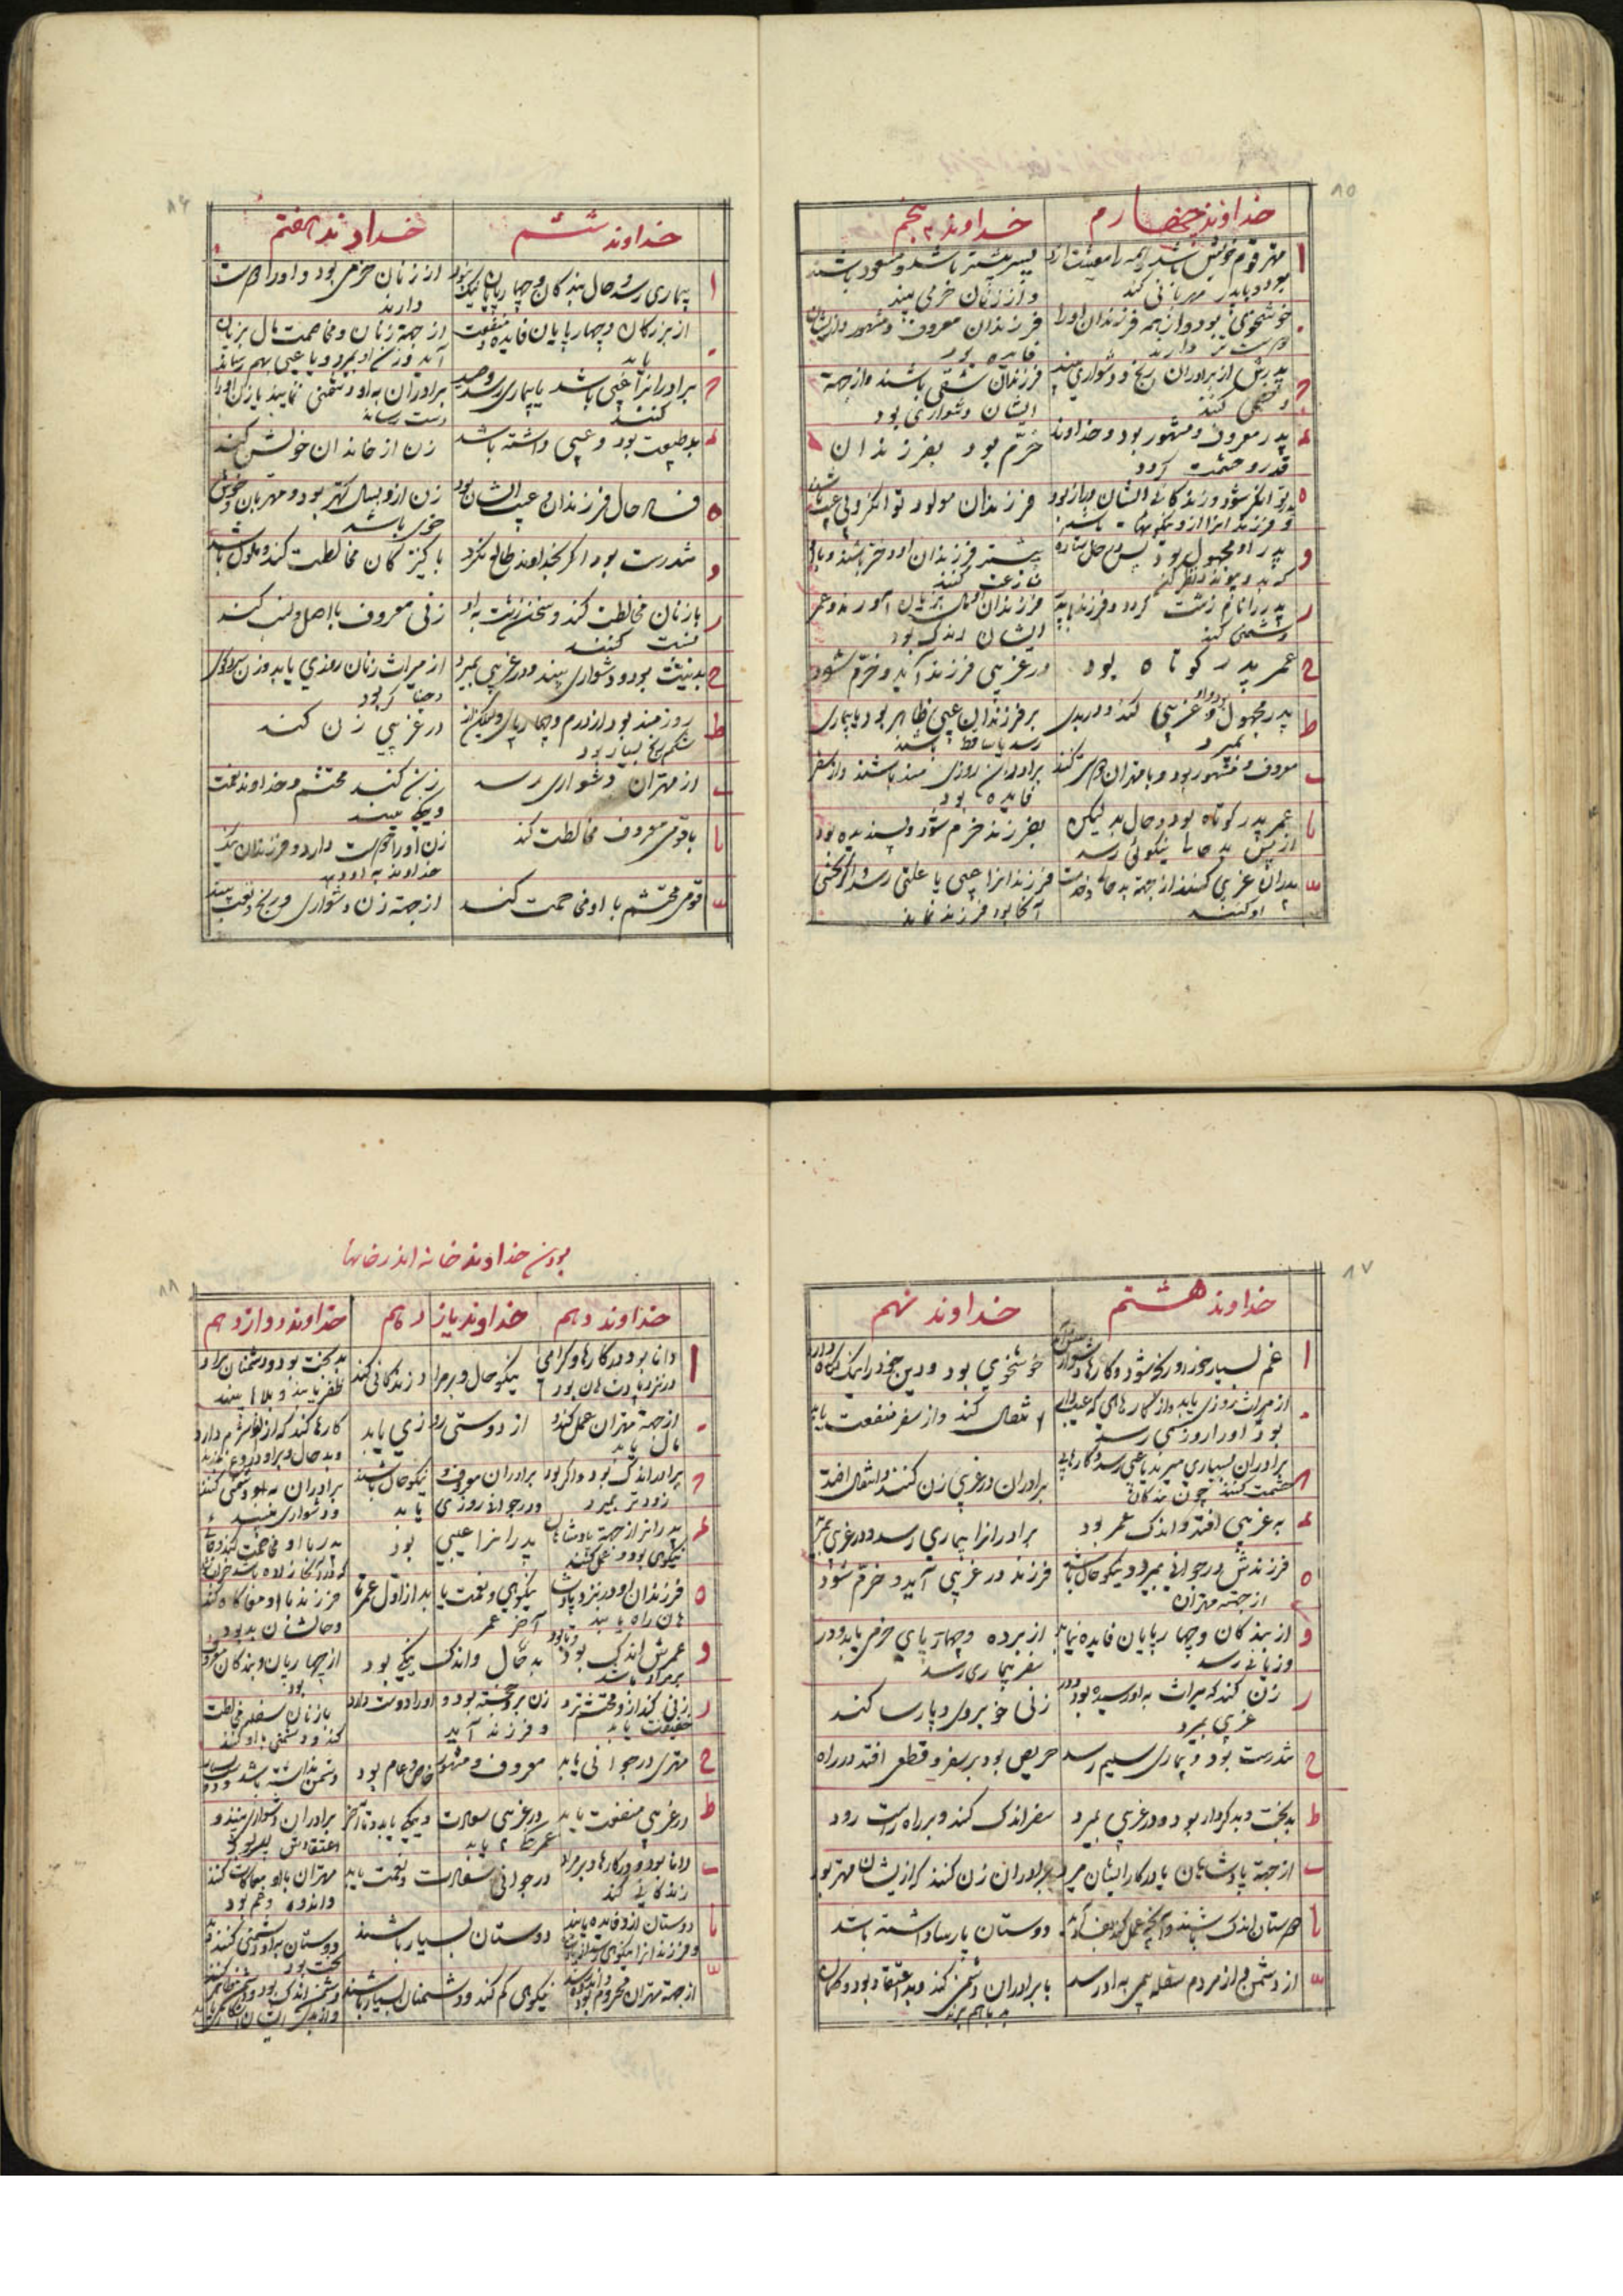 ۸۵
خداوند چهارم
خداوند پنجم
ا
مهتر قوم خویش باشد و همه را معیشت ازو
بود و با پدر مهربانی کند
پسر بیشتر باشد و مسعود باشند
و از زنان خرمی بیند
خوشخوی بود و از همه فرزندان او را
دوست تر دارند
فرزندان معروف و مشهور و از ایشان
فایده بود
پدرش از برادران رنج و دشواری بیند
و خصمی کنند
فرزندان شقی باشند و از جهة
ایشان دشواری بود
پدر معروف و مشهور بود و خداوند
قدر و حشمت گردد
خرّم بود بفرزندان
ه
توانگر شود و زندگانی ایشان دراز بود
و فرزندانرا ازو نیکوئیها باشد
فرزندان مولود توانگر و بی عیب باشند
و
پدر او مجهول بود
بیشتر فرزندان او دختر باشند و با او
منازعت کنند
ر
پدر را نام زشت گردد و فرزند با پدر
دشمنی کند
فرزندان مال بزیان آورند و عمر
ایشان اندک بود
ح
عمر پدر کوتاه بود
در غریبی فرزند آید و خرّم شود
ط
پدر مجهول بود و غریبی کند و در بدی
بمیرد
بر فرزندان عیبی ظاهر بود یا بیماری
رسد یا ساقط باشند
ی
معروف و مشهور بود و با مهتران دوستی کند
برادران روزی مند باشند و از سفر
فایده بود
یا
عمر پدر کوتاه بود و حال بد لیکن
از پس بد حالی نیکوئی رسد
بفرزند خرم شود و پسندیده بود
یب
پدران غریبی کنند از جهة بد حالی و خدمت
او کنند
فرزندانرا عیبی یا علتی رسد و اگر نحسی
آنجا بود فرزند نماند
۸۶
خداوند ششم
خداوند هفتم
ا
بیماری رسد و حال بندگان و چهارپایان نیک شود
از زنان خرمی بود و او را دوست
دارند
از بزرگان و چهارپایان فایده و منفعت
یابد
از جهة زنان و مخاصمت مال بزیان
آید و زن او بمیرد و یا عیبی بهم رساند
برادرانرا عیبی باشد یا بیماری رسد و حسد
کنند
برادران به او دشمنی نمایند یا زن او را
دست رسانند
بد طبیعت بود و عیبی داشته باشد
زن از خاندان خویش کند
ه
فساد حال فرزندان و عیب ایشان بود
زن ازو بسال کهتر بود و مهربان و خوش
خوی باشد
و
تندرست بود اگر بخداوند طالع نگرد
با کنیزکان مخالطت کند و ملول باشد
ر
با زنان مخالطت کند و سخن زشت به او
نسبت کنند
زنی معروف با اصل و نسب کند
ح
بدنیت بود و دشواری بیند و در غریبی بمیرد
از میراث زنان روزی یابد و زن سرد گوی
و جفا گر بود
ط
روزمند بود از درم و چهارپای ولیکن از
شکم رنج بسیار بود
در غریبی زن کند
ی
از مهتران دشواری رسد
زن کند محتشم و خداوند نعمت
و نیکی بیند
یا
با قومی معروف مخالطت کند
زن او را دوست دارد و فرزندان نیک
خداوند به او دهد
یب
قومی محتشم با او مخاصمت کنند
از جهة زن دشواری و رنج و تعب بیند
۸۷
خداوند هشتم
خداوند نهم
ا
غم بسیار خورد و رنجه شود و کارها دشوار
خوشخوی بود و دین خود را نیک نگاه دارد
از میراث روزی یابد و از کارهای که عیب دارد
بود او را روزی رسد
انتقال کند و از سفر منفعت یابد
برادران بسیاری میرند یا عیبی رسد و کارهای
خدمت کنند چون بندگان
برادران در غریبی زن کنند و انتقال افتد
به غریبی افتد و اندک عمر بود
برادرانرا بیماری رسد و در غریبی بمیرد
ه
فرزندش در جوانی بمیرد و نیکو حال باشد
از جهة مهتران
فرزند در غریبی آید و خرّم شود
و
از بندگان و چهارپایان فایده نیابد
و زیانی رسد
از برده و چهارپای خرمی یابد و در
سفر بیماری رسد
ر
زن کند که میراث به او رسیده بود و در
غریبی بمیرد
زنی خوبروی و پارسا کند
ح
تندرست بود و بیماری سلیم رسد
حریص بود بر سفر و قطعی افتد در راه
ط
بدبخت و بدکردار بود و در غریبی بمیرد
سفر اندک کند و بر راه راست رود
ی
از جهة پادشاهان یا در کار ایشان میرد
برادران زن کنند که از ایشان مهتر بود
یا
دوستان اندک باشند و آنچه عمل کند بفساد آید
دوستان پارسا داشته باشد
یب
از دشمن و از مردم سفله بیم به او رسد
با برادران دشمنی کند و بد اعتقاد بود و گمان
بد با هم برند
بودن خداوند خانه اندر خانها
۸۸
خداوند دهم
خداوند یازدهم
خداوند دوازدهم
ا
دانا بود در کارها و گرامی
در نزد پادشاهان بود
نیکو حال و بر مراد زندگانی کند
بدبخت بود و دشمنان بر او
ظفر یابند و بلاها بیند
از جهة مهتران عمل کند و
مال یابد
از دوستی روزی یابد
کارها کند که ازو شرم دارد
و بد حال و بر او دروغ گویند
برادر اندک بود و اگر بود
زودتر بمیرد
برادران معروف و نیکو حال باشند
و در جوانی روزی یابد
برادران به او دشمنی کنند
و دشواری بیند
پدرانرا از جهة پادشاهان
نیکوی بود و عمل کنند
پدرانرا عیبی بود
پدر با او مخاصمت کند
ه
فرزندان او در نزد پادشا
هان راه یابند
نیکویی و نعمت یابد از اول عمر تا
آخر عمر
فرزند با او مفاجات کند
و حالشان بد بود
و
عمرش اندک بود و تا بود
بر مراد باشد
بد حال و اندک نیکی بود
از چهارپایان و بندگان مضرت
بود
ر
زنی کند ازو محتشم تر و
منفعت یابد
زن برو خجسته بود و او را دوست دارد
و فرزند آید
با زنان سفله مخالطت
کند و دشمنی با او کنند
ح
مهتری در جوانی یابد
معروف و مشهور خاص و عام بود
دشمن نداشته باشد
ط
در غریبی منفعت یابد
در غریبی سعادت و نیکی یابد و تا آخر
عمر
برادران دشواری بینند و
اعتقادش
ی
دانا بود در کارها و بر مراد
زندگانی کند
در جوانی سعادت و نعمت یابد
مهتران با او
و اندوه و هم بود
یا
دوستان ازو فایده یابند
و فرزندانرا نیکوی
دوستان بسیار باشند
دوستان به او دشمنی کنند
بخت بود
یب
از جهة مهتران محروم بود
نیکوی کم کند و دشمنان بسیار باشند
دشمن اندک بود